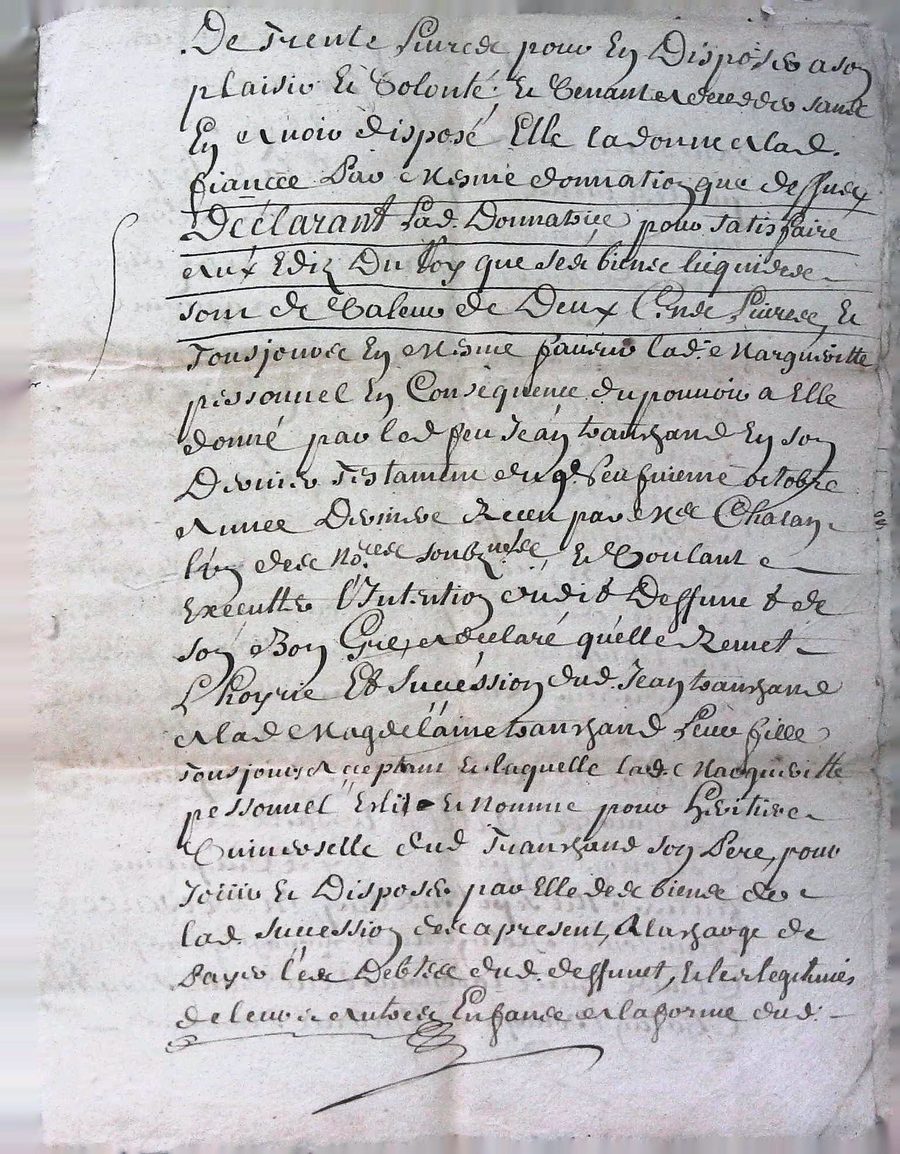 De Trente Livres pour En Disposer a son
plaisir Et Volonté, Et Venant a deceder sans
En avoir disposé Elle la donne a lad.
fiancée Par mesme donnation que dessus
Déclarant Lad. Donnatrice pour satisfaire
aux Ediz Du Roy que ses biens liquides
sont de Valeur de Deux Cens Livres, Et
Tousjours En mesme faveur lad.e Margueritte
pessonnel En Conséquence du pouvoir a Elle
donné par led feu Jean Tranchand En son
Dernier Testament du
octobre
année Derniere Receu par Me Chatan
lin des No.res soubz.nés, Et Voulant
Executter l'Intention dudit Deffunt & de
son Bon Gré, a déclaré qu'elle Remet
L'hoyrie Et Succéssion dud. Jean Tranchand
a lad Magdelaine Tranchand Leur fille
Tousjours acceptant Et laquelle lad.e Margueritte
pessonnel Eslit Et Nomme pour heritiere
Universelle dud Tranchand son Pere, pour
Jouir Et Disposer par Elle des biens de
lad. Succession des apresent, A la charge de
Payer les Debtes dud. deffunt, Et les legitimes
de leurs autres Enfans a la forme dud.